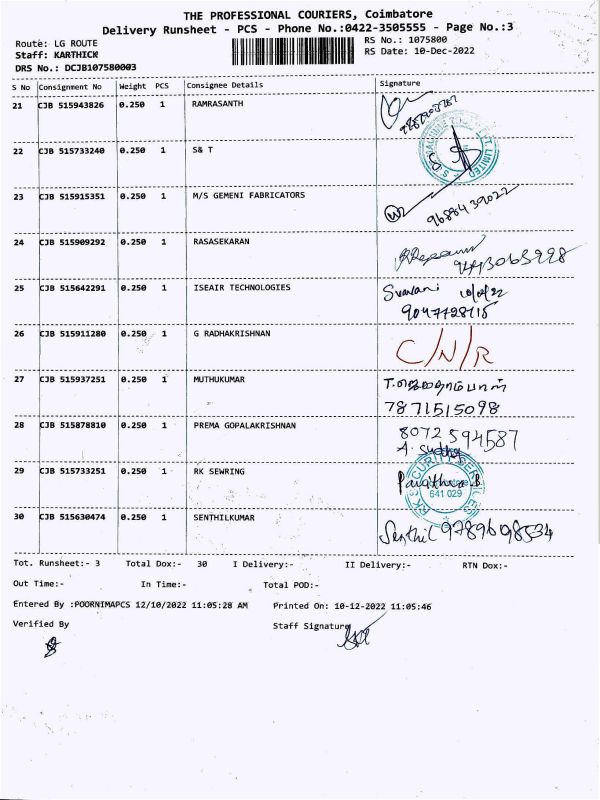 THE PROFESSIONAL COURIERS, Coimbatore
Delivery Runsheet - PCS - Phone No.:0422-3505555 - Page No.:3
Route: LG ROUTE
RS No.: 1075800
Staff: KARTHICK
RS Date: 10-Dec-2022
DRS No.: DCJB107580003
S No Consignment No Weight PCS Consignee Details Signature
21 CJB 515943826 0.250 1 RAMRASANTH
22 CJB 515733240 0.250 1 S& T
23 CJB 515915351 0.250 1 M/S GEMENI FABRICATORS
9688439022
24 CJB 515909292 0.250 1 RASASEKARAN
25 CJB 515642291 0.250 1 ISEAIR TECHNOLOGIES
9047728115
26 CJB 515911280 0.250 1 G RADHAKRISHNAN C/N/R
27 CJB 515937251 0.250 1 MUTHUKUMAR
7871515098
28 CJB 515878810 0.250 1 PREMA GOPALAKRISHNAN 8072594587
A. Sudha
29 CJB 515733251 0.250 1 RK SEWRING
RKS SECURITY SERVICES
641 029
30 CJB 515630474 0.250 1 SENTHILKUMAR
Senthil 9789698534
Tot. Runsheet:- 3 Total Dox:- 30 I Delivery:- II Delivery:- RTN Dox:-
Out Time:- In Time:- Total POD:-
Entered By :POORNIMAPCS 12/10/2022 11:05:28 AM Printed On: 10-12-2022 11:05:46
Verified By Staff Signature